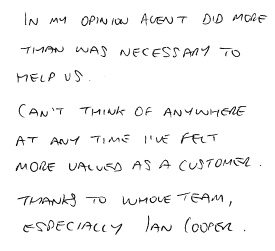 IN MY OPINION AGENT DID MORE
THAN WAS NECESSARY TO
HELP US.
CAN'T THINK OF ANYWHERE
AT ANY TIME I'VE FELT
MORE VALUED AS A CUSTOMER.
THANKS TO WHOLE TEAM,
ESPECIALLY IAN COOPER.